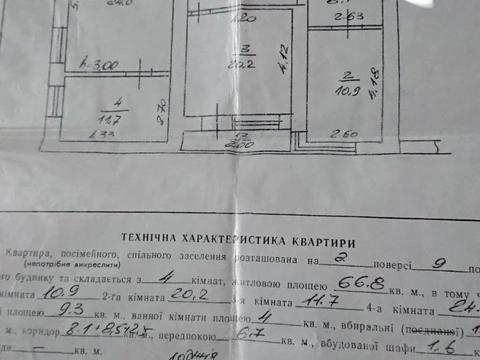 24.0
1.20
2.63
h-3,00
3
20.2
4,12
2
10.9
4,18
4
11,7
2.60
2.00
ТЕХНІЧНА ХАРАКТЕРИСТИКА КВАРТИРИ
Квартира, посімейного, спільного заселення розташована на 2 поверсі 9
(непотрібне викреслити)
го будинку та складається з 4 кімнат, житловою площею 66.8 кв. м., в тому ч
кімната 10.9 2-га кімната 20.2 3-я кімната 11.7 4-а кімната
площею 9.3 кв. м., ванної кімнати площею 4 кв. м., вбиральні (поєднаної)
м., коридор кв. м., передпокою 6.7 кв. м., вбудованої шафи 1,6 к
кв. м.